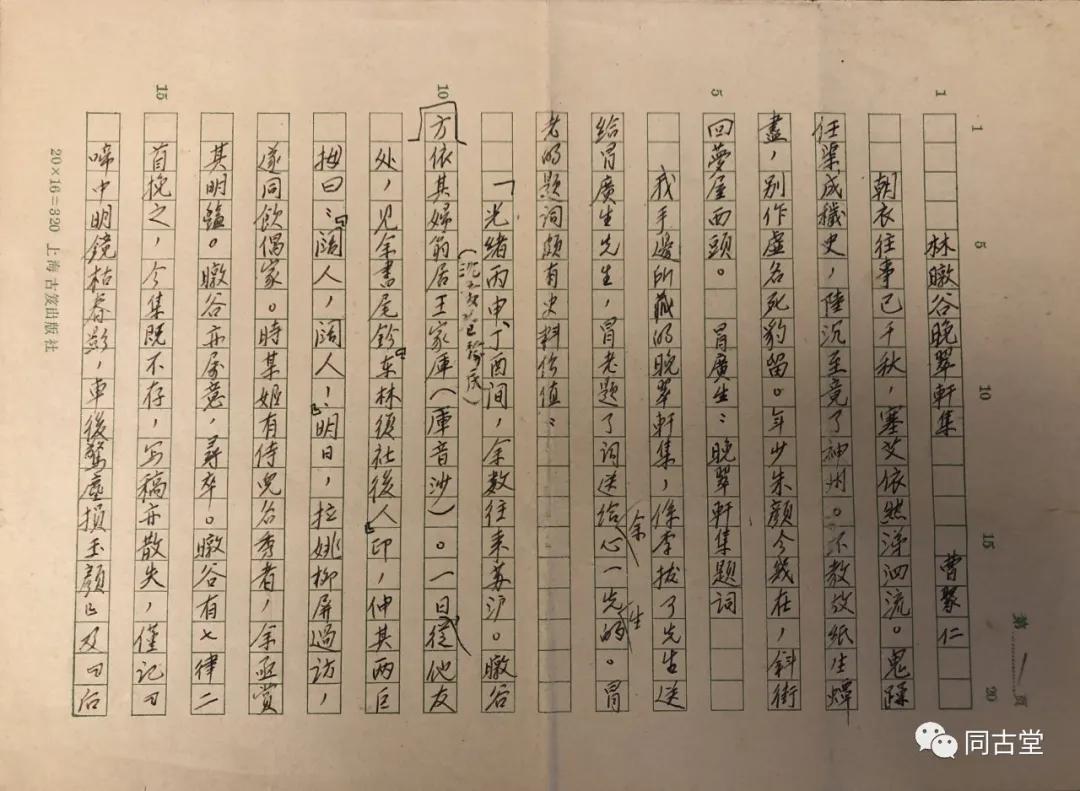 林暾谷晚翠軒集
曹聚仁
朝衣往事已千秋，塞艾依然涕泗流。鬼躁
任渠成穢史，陸沉至竟了神州。不教故紙生蟫
蠹，別作虛名死豹留。年少朱顏今幾在，斜街
回夢屋西頭。 冒廣生：晚翠軒集題詞
我手邊所藏的晚翠軒集，係李拔了先生送
給冒廣生先生，冒老題了詞送給余心一先生的。冒
老的題詞頗有史料价值：
「光緒丙申、丁酉间，余数往来苏沪。暾谷
方依其婦翁居王家庫（庫音沙）。一日從他友
处，见余書尾鈐『东林复社後人』印，伸其两巨
拇曰：『闊人，闊人！』明日，拉姚柳屏過訪，
遂同飲偶家。時某姬有侍兒谷秀者，余亟賞
其明豔。暾谷亦屬意，尋卒。暾谷有七律二
首挽之，今集既不存，写稿亦散失，僅记曰
啼中明鏡枯春影，車後驚塵損玉顏』及曰后
第 一 页
1
5
10
15
20
1
5
10
15
20×16=320 上海古笈出版社
同古堂